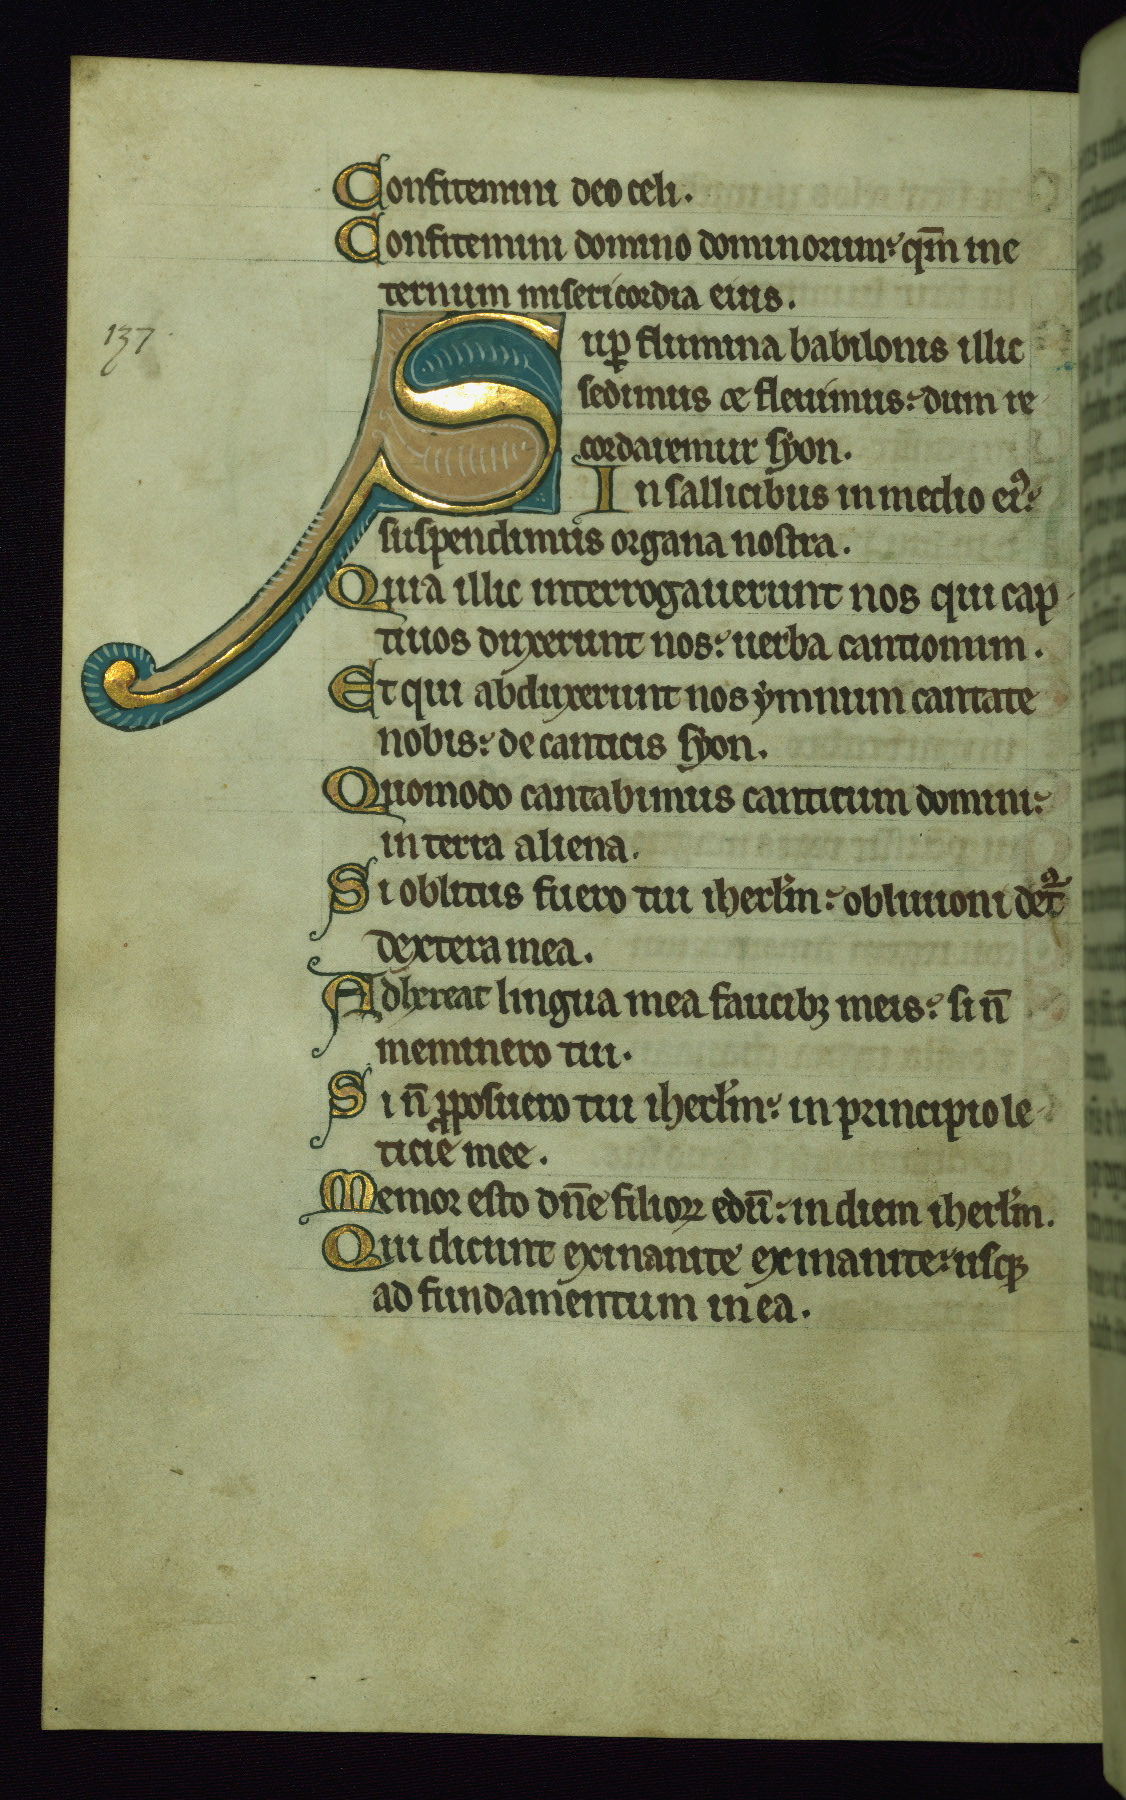 Confitemini deo celi.
Confitemini domino dominorum: qm̄ in e
ternum misericordia eius.
137
Sup̱ flumina babilonis illic
sedimus ⁊ fleuimus: dum re
cordaremur syon.
In sallicibus in medio ei᷒:
suspendimus organa nostra.
Quia illic interrogauerunt nos qui cap
tiuos duxerunt nos: uerba cantionum.
Et qui abduxerunt nos ymnum cantate
nobis: de canticis syon.
Quomodo cantabimus canticum domini:
in terra aliena.
Si oblitus fuero tui iherl̄m: obliuioni det̄᷑
dextera mea.
Adhereat lingua mea faucibꝫ meis: si n̄
meminero tui.
Si n̄ ꝓposuero tui iherl̄m: in principio le
ticie mee.
Memor esto dn̄e filioꝝ edō: in diem iherl̄m.
Qui dicunt exinanite exinanite: usqꝫ
ad fundamentum in ea.